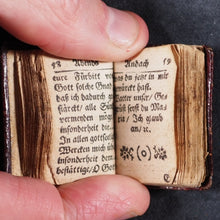 58 Abends
eure Fürbitt vo
Gott solche Gnad
daß ich dadurch ge
stärckt/ alle Sün
vermeyden möge
insonderheit die
in allen Gottselige
Wercken mich und
insonderheit dem
bestättige/ O Gott
Andach 59
was du jetzt in mir
würcket hast.
Vatter unser/ Ge
grüst seyst du Ma
ria/ Ich glaub
an/ ꝛc.